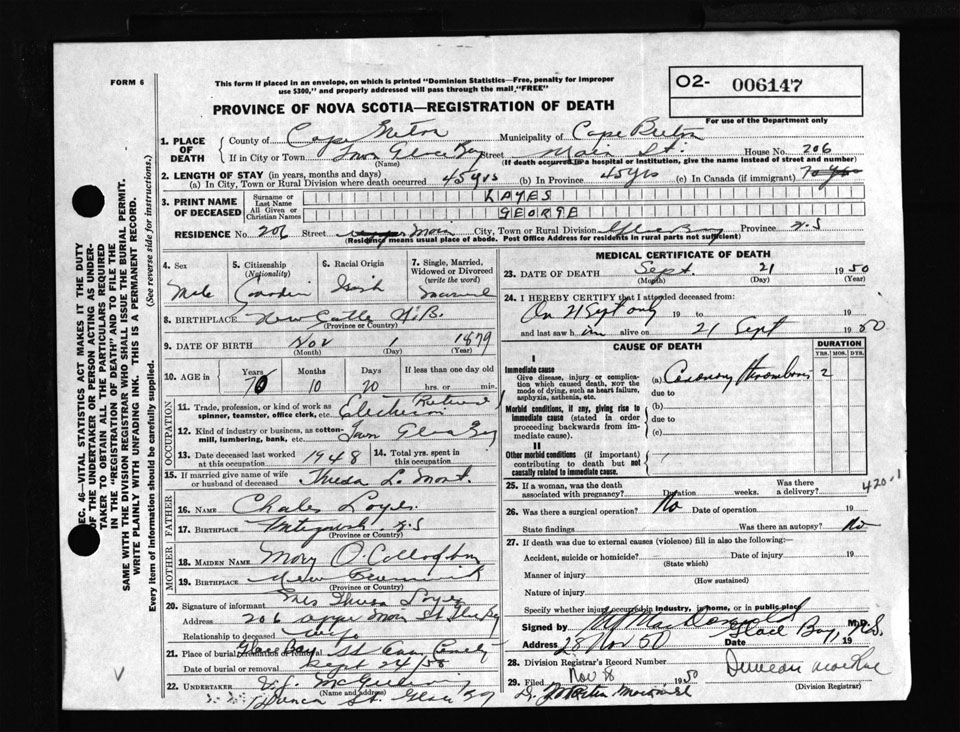 FORM 6
This form if placed in an envelope, on which is printed "Dominion Statistics—Free, penalty for improper
use $300," and properly addressed will pass through the mail "FREE"
O2- 006147
For use of the Department only
PROVINCE OF NOVA SCOTIA—REGISTRATION OF DEATH
1. PLACE OF DEATH
County of Cape Breton Municipality of Cape Breton
If in City or Town Town Glace Bay Street Main St. House No. 206
(Name) (If death occurred in a hospital or institution, give the name instead of street and number)
2. LENGTH OF STAY (in years, months and days)
(a) In City, Town or Rural Division where death occurred 45 yrs (b) In Province 45 yrs (c) In Canada (if immigrant)
3. PRINT NAME OF DECEASED
Surname or Last Name
All Given or Christian Names GEORGE
RESIDENCE No. 206 Street Main City, Town or Rural Division Glace Bay Province N.S
(Residence means usual place of abode. Post Office Address for residents in rural parts not sufficient)
4. Sex Male
5. Citizenship (Nationality)
6. Racial Origin Irish
7. Single, Married, Widowed or Divorced (write the word) Married
8. BIRTHPLACE N.B.
(Province or Country)
9. DATE OF BIRTH Nov 1 1879
(Month) (Day) (Year)
10. AGE in Years 70 Months 10 Days 20 If less than one day old hrs. or min.
OCCUPATION
11. Trade, profession, or kind of work as spinner, teamster, office clerk, etc. Retired
12. Kind of industry or business, as cotton-mill, lumbering, bank, etc. Town Glace Bay
13. Date deceased last worked at this occupation 1948
14. Total yrs. spent in this occupation
15. If married give name of wife or husband of deceased
FATHER
16. NAME Charles
17. BIRTHPLACE Antigonish N.S
(Province or Country)
MOTHER
18. MAIDEN NAME Mary
19. BIRTHPLACE New Brunswick
(Province or Country)
20. Signature of informant Mrs
Address 206 upper Main St Glace Bay
Relationship to deceased wife
21. Place of burial, cremation or removal Glace Bay
Date of burial or removal Sept 24/50
22. UNDERTAKER V.J.
(Name and address)
St. Glace Bay
MEDICAL CERTIFICATE OF DEATH
23. DATE OF DEATH Sept 21 1950
(Month) (Day) (Year)
24. I HEREBY CERTIFY that I attended deceased from:
On 21 Sept only 19 to 19
and last saw him alive on 21 Sept 1950
CAUSE OF DEATH
DURATION
YRS. MOS. DYS.
I
Immediate cause
Give disease, injury or complication which caused death, not the mode of dying, such as heart failure, asphyxia, asthenia, etc.
(a) Coronary Thrombosis 2
due to
Morbid conditions, if any, giving rise to immediate cause (stated in order proceeding backwards from immediate cause).
(b)
due to
(c)
II
Other morbid conditions (if important) contributing to death but not causally related to immediate cause.
420-1
25. If a woman, was the death associated with pregnancy? Duration weeks. Was there a delivery?
26. Was there a surgical operation? No Date of operation 19
State findings Was there an autopsy? No
27. If death was due to external causes (violence) fill in also the following:—
Accident, suicide or homicide? Date of injury 19
(State which)
Manner of injury
(How sustained)
Nature of injury
Specify whether injury occurred in industry, in home, or in public place
Signed by MacDonald M.D.
Address Glace Bay, N.S.
28 Nov 50 Date 19
28. Division Registrar's Record Number
29. Filed Nov 1950
Duncan
(Division Registrar)
SEC. 46—VITAL STATISTICS ACT MAKES IT THE DUTY
OF THE UNDERTAKER OR PERSON ACTING AS UNDER-
TAKER TO OBTAIN ALL THE PARTICULARS REQUIRED
IN THE "REGISTRATION OF DEATH" AND TO FILE THE
SAME WITH THE DIVISION REGISTRAR WHO SHALL ISSUE THE BURIAL PERMIT.
WRITE PLAINLY WITH UNFADING INK. THIS IS A PERMANENT RECORD.
Every item of information should be carefully supplied. (See reverse side for instructions.)